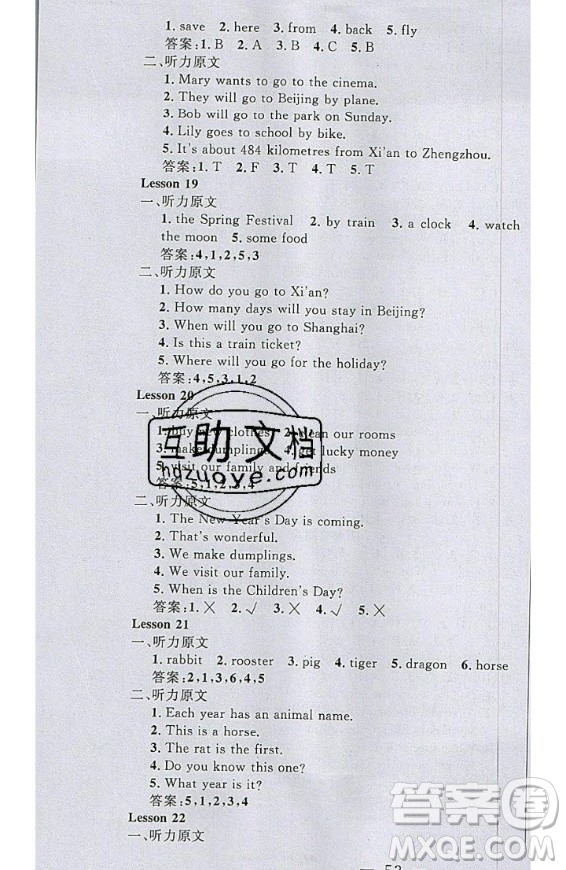 1. save 2. here 3. from 4. back 5. fly
答案:1. B 2. A 3. B 4. C 5. B
二、听力原文
1. Mary wants to go to the cinema.
2. They will go to Beijing by plane.
3. Bob will go to the park on Sunday.
4. Lily goes to school by bike.
5. It's about 484 kilometres from Xi'an to Zhengzhou.
答案:1. T 2. F 3. T 4. T 5. T
Lesson 19
一、听力原文
1. the Spring Festival 2. by train 3. a clock 4. watch
the moon 5. some food
答案:4,1,2,5,3
二、听力原文
1. How do you go to Xi'an?
2. How many days will you stay in Beijing?
3. When will you go to Shanghai?
4. Is this a train ticket?
5. Where will you go for the holiday?
答案:4,5,3,1,2
Lesson 20
一、听力原文
1. buy new clothes 2. clean our rooms
3. make dumplings 4. get lucky money
5. visit our family and friends
答案:5,1,2,3,4
二、听力原文
1. The New Year's Day is coming.
2. That's wonderful.
3. We make dumplings.
4. We visit our family.
5. When is the Children's Day?
答案:1. × 2. √ 3. × 4. √ 5. ×
Lesson 21
一、听力原文
1. rabbit 2. rooster 3. pig 4. tiger 5. dragon 6. horse
答案:2,1,3,6,4,5
二、听力原文
1. Each year has an animal name.
2. This is a horse.
3. The rat is the first.
4. Do you know this one?
5. What year is it?
答案:5,1,2,3,4
Lesson 22
一、听力原文
互助文档
hdzuoye.com
答案圈
MXQE.COM